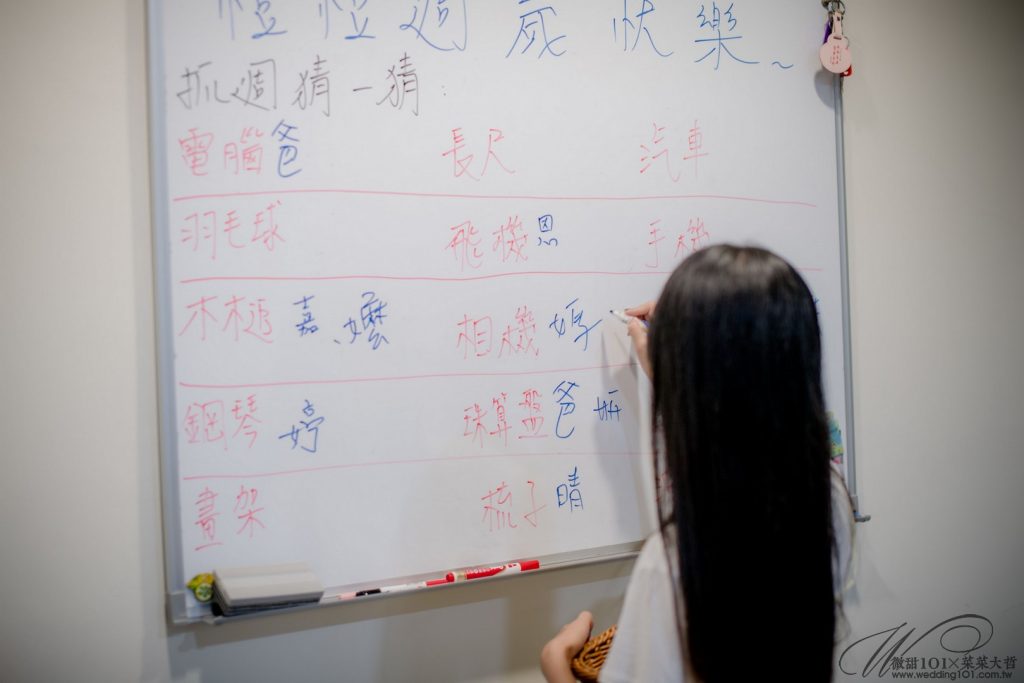 愷愷週歲快樂~
抓週猜一猜:
電腦爸 長尺 汽車
羽毛球 飛機恩 手機
木槌 嘉、嬤 相機 婷
鋼琴 婷 珠算盤爸 姸
畫架 梳子晴
微甜101×菜菜大哲
www.wedding101.com.tw